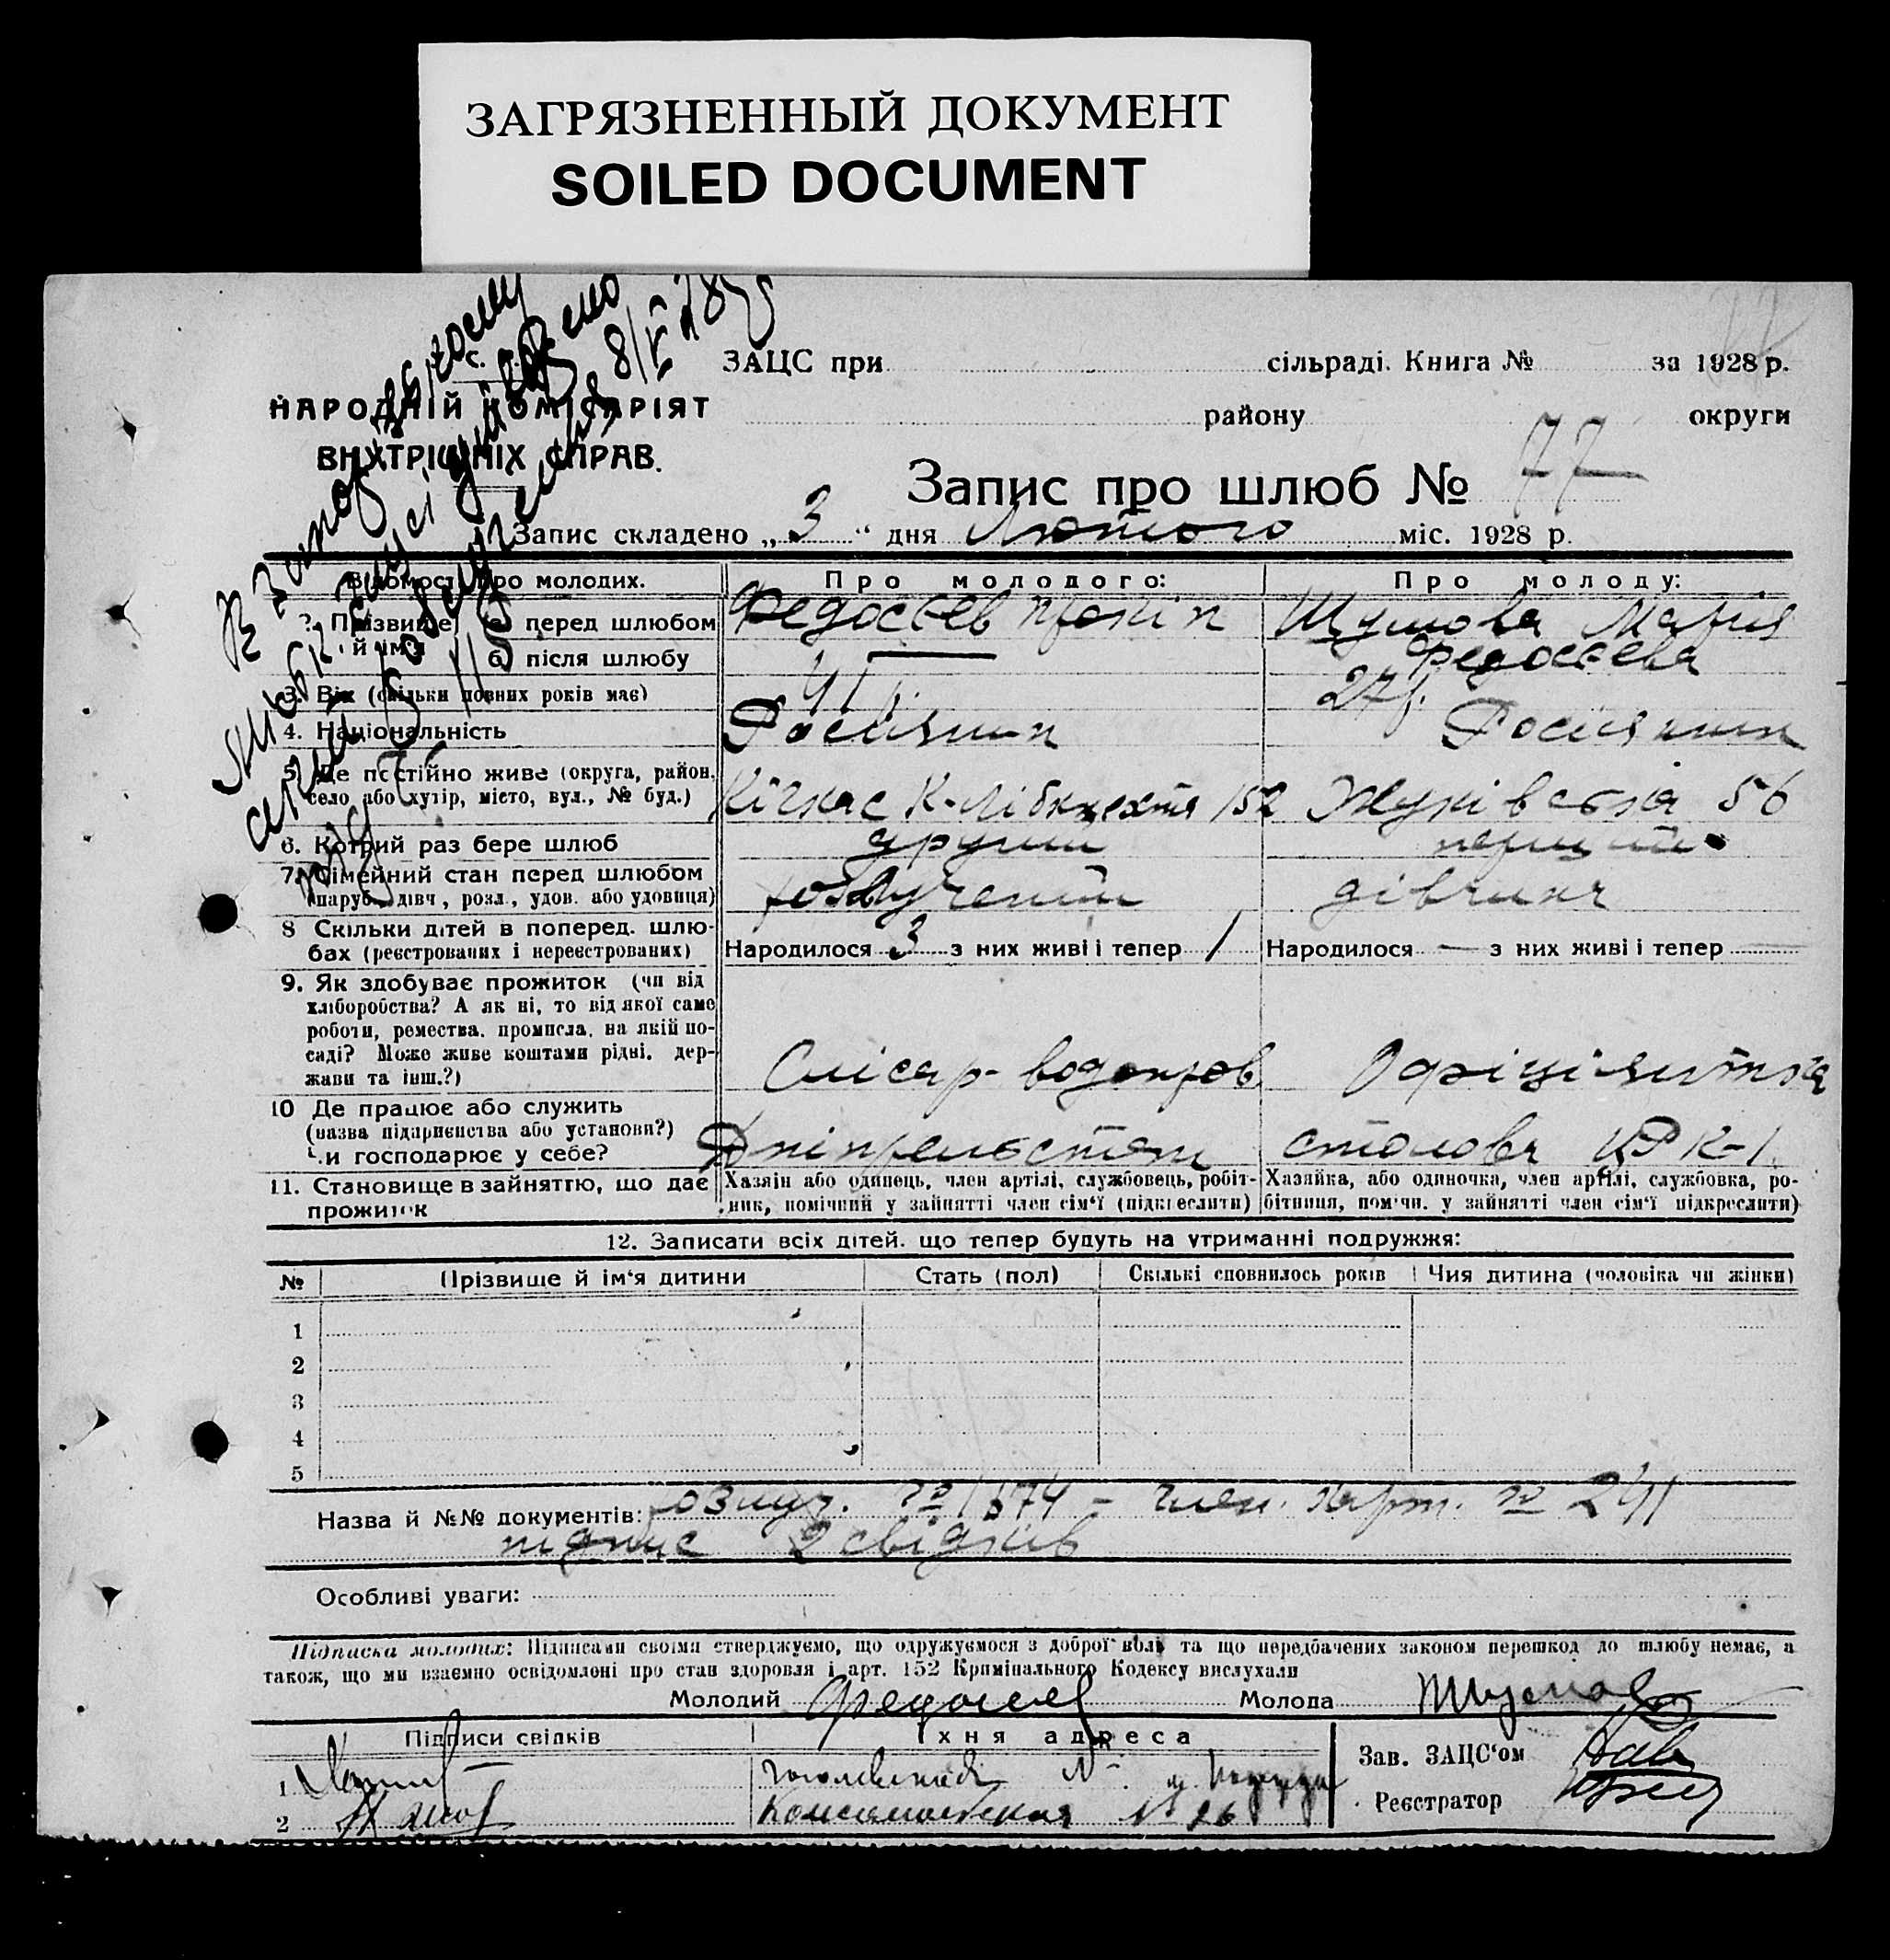 ЗАГРЯЗНЕННЫЙ ДОКУМЕНТ
SOILED DOCUMENT
НАРОДНІЙ КОМІСАРІЯТ
ВНУТРІШНІХ СПРАВ.
ЗАЦС при сільраді. Книга № за 1928 р.
району округи
Запис про шлюб № 77
Запис складено „3“ дня Лютого міс. 1928 р.
Відомості про молодих. Про молодого: Про молоду:
2. Прізвище й ім'я а) перед шлюбом Федосєев Прокіп Шумова Марія
б) після шлюбу — Федосєева
3. Вік (скільки повних років має) 41 р. 27 р.
4. Національність Росіянин Росіянин
5. Де постійно живе (округа, район, село або хутір, місто, вул., № буд.) Кічкас К-Лібкнехта 152 Жуківська 56
6. Котрий раз бере шлюб другий перший
7. Сімейний стан перед шлюбом (паруб., дівч., розл., удов. або удовиця) розлучений дівчина
8 Скільки дітей в поперед. шлюбах (реєстрованих і нереєстрованих) Народилося 3 з них живі і тепер 1 Народилося — з них живі і тепер —
9. Як здобуває прожиток (чи від хліборобства? А як ні, то від якої саме роботи, ремества, промисла, на якій посаді? Може живе коштами рідні, держави та інш.?) Слісар-водопров Офіціянтка
10 Де працює або служить (назва підприємства або установи?) Чи господарює у себе? Дніпрельстан столова ЦРК-1.
11. Становище в зайняттю, що дає прожиток Хазяїн або одинець, член артілі, службовець, робітник, помічний у зайнятті член сім'ї (підкреслити) Хазяйка, або одиночка, член артілі, службовка, робітниця, помічн. у зайнятті член сім'ї підкреслити)
12. Записати всіх дітей, що тепер будуть на утриманні подружжя:
№ Прізвище й ім'я дитини Стать (пол) Скількі сповнилось років Чия дитина (чоловіка чи жінки)
1
2
3
4
5
Назва й №№ документів: розлуч. № 1574 – член. карт. № 241
підпис 2 свідків
Особливі уваги:
Підписка молодих: Підписами своїми стверджуємо, що одружуємося з доброї волі та що передбачених законом перешкод до шлюбу немає, а
також, що ми взаємно освідомлені про стан здоровля і арт. 152 Кримінального Кодексу вислухали
Молодий Федосеев Молода Шумова
Підписи свідків Їхня адреса
Зав. ЗАЦС'ом
1
Реєстратор
2 Комсомольская № 26